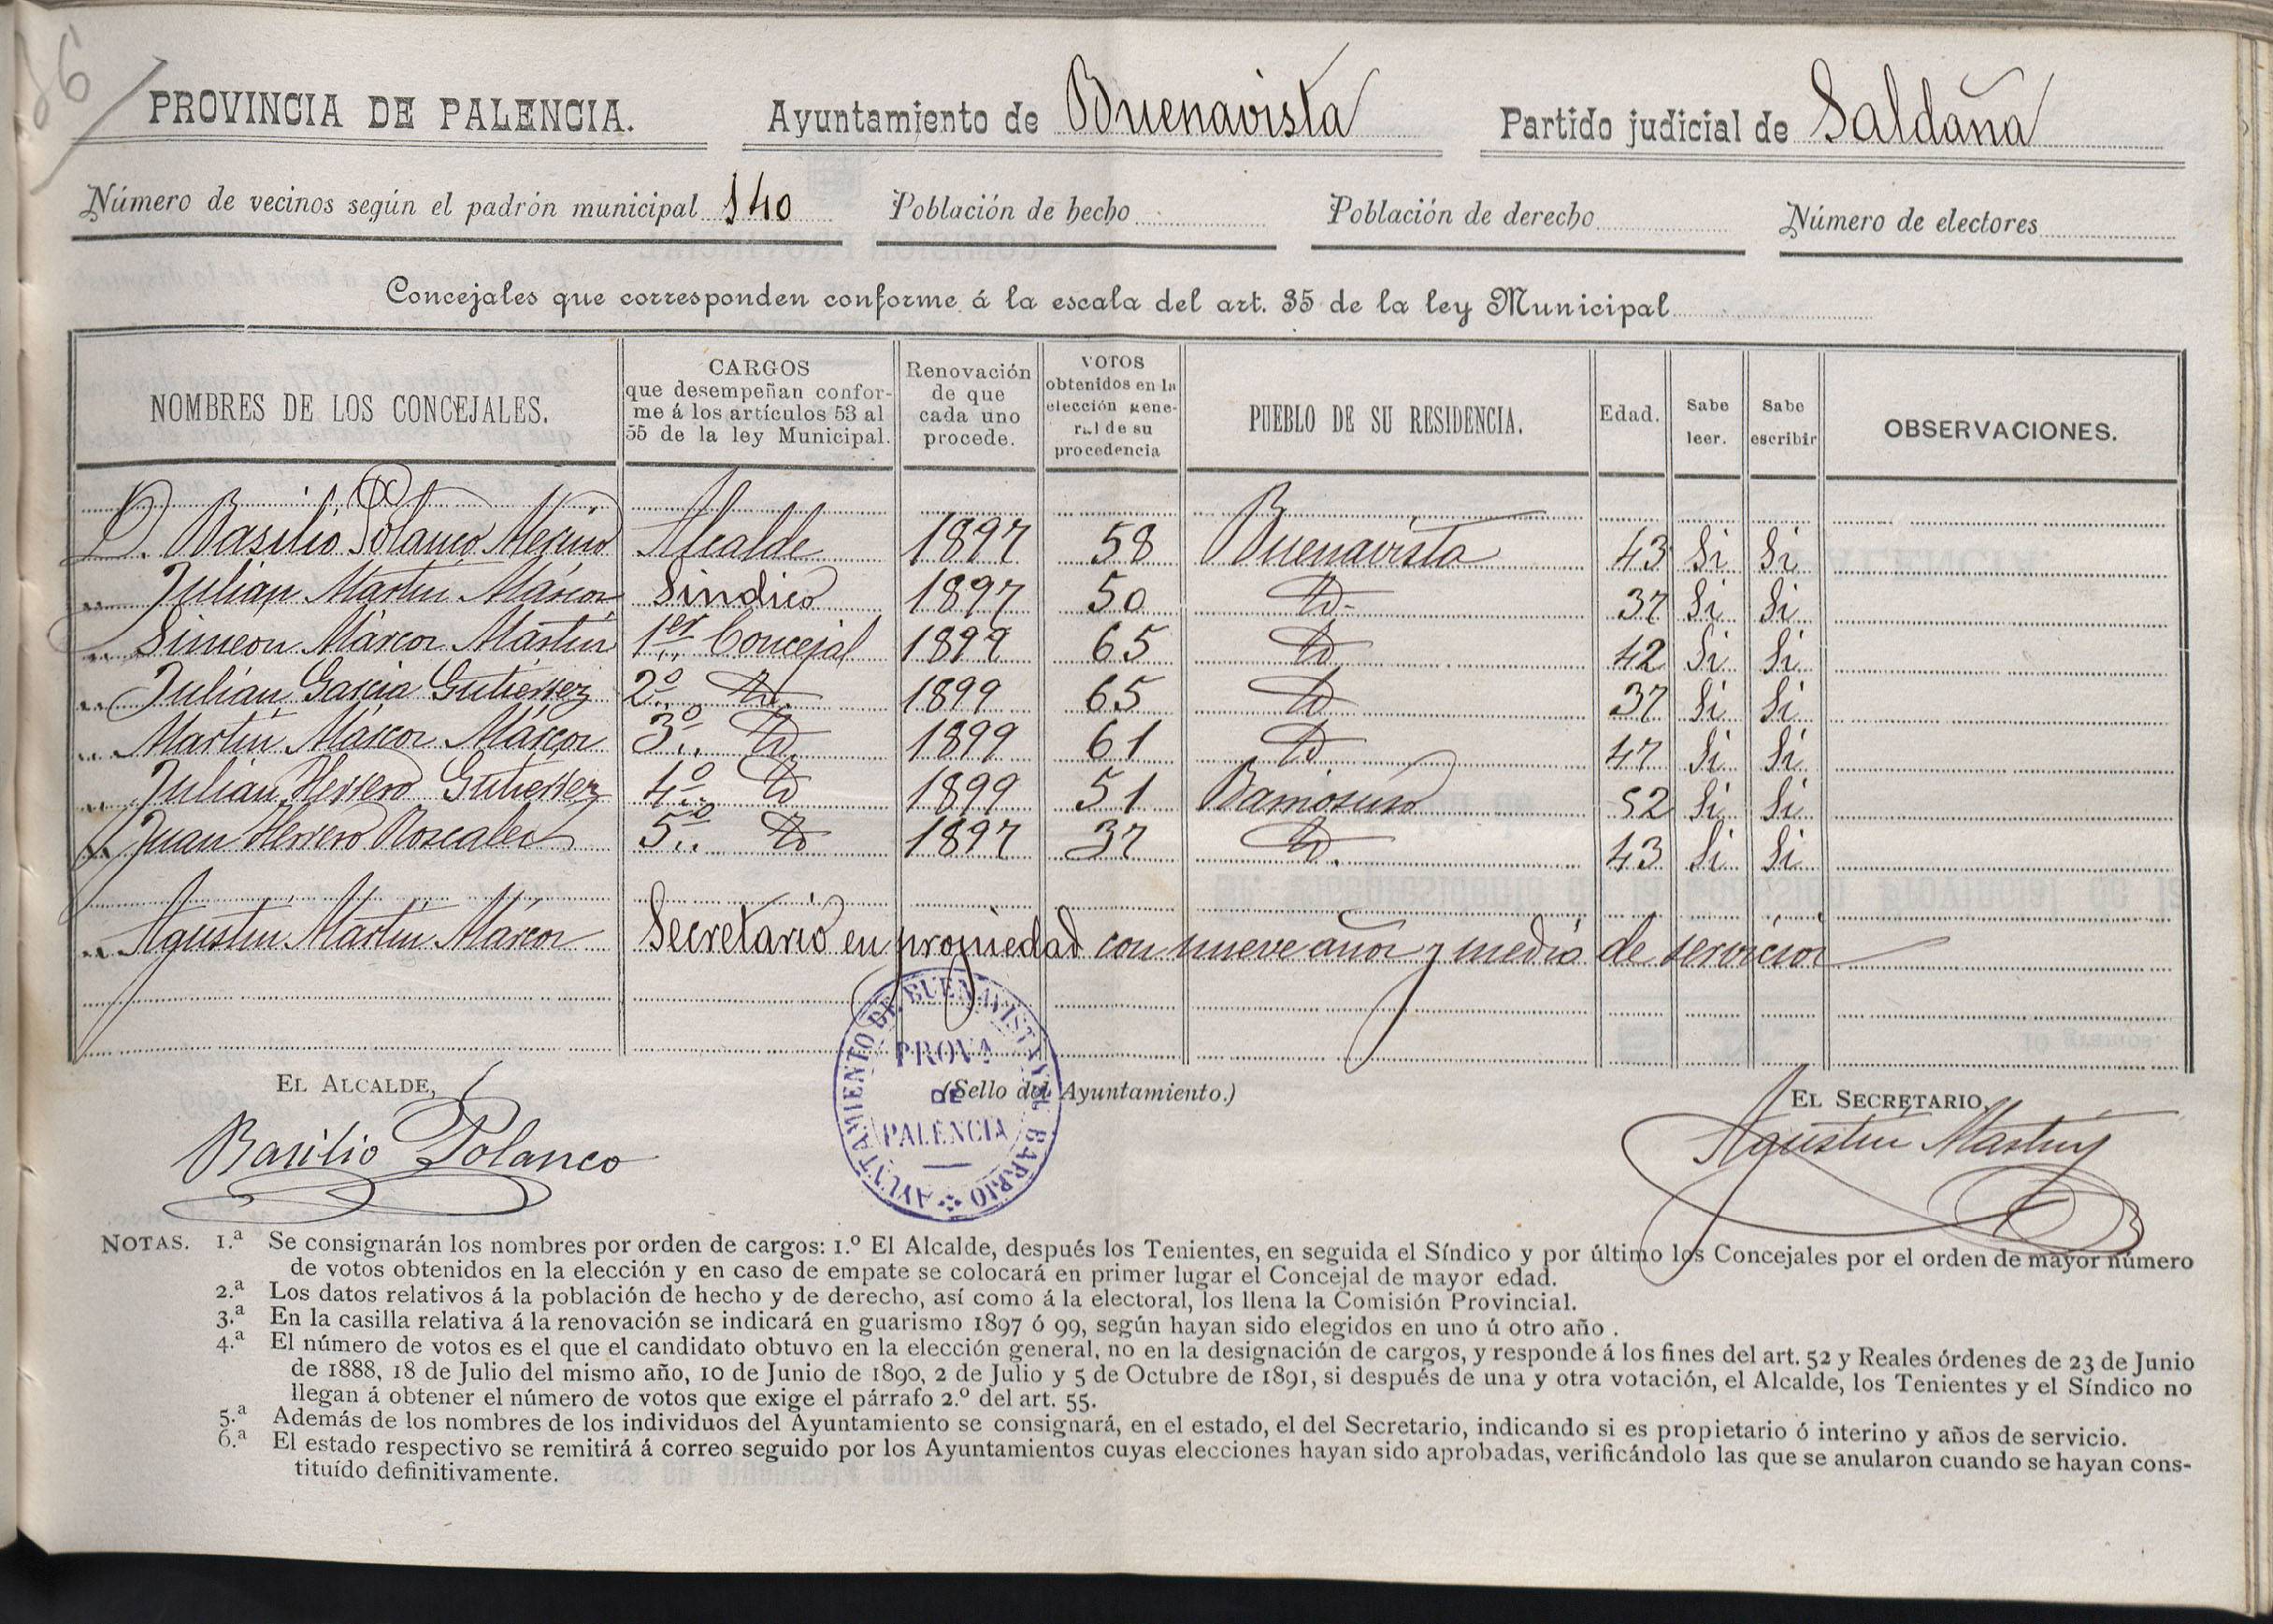 86
PROVINCIA DE PALENCIA. Ayuntamiento de Buenavista Partido judicial de Saldaña
Número de vecinos según el padrón municipal 140 Población de hecho Población de derecho Número de electores
Concejales que corresponden conforme á la escala del art. 35 de la ley Municipal
NOMBRES DE LOS CONCEJALES. CARGOS que desempeñan conforme á los artículos 53 al 55 de la ley Municipal. Renovación de que cada uno procede. VOTOS obtenidos en la elección general de su procedencia PUEBLO DE SU RESIDENCIA. Edad. Sabe leer. Sabe escribir OBSERVACIONES.
D. Basilio Polanco Merino Alcalde 1897 58 Buenavista 43 Si Si
" Julian Martin Márcos Sindico 1897 50 Id. 37 Si Si
" Simeon Márcos Martin 1er Concejal 1899 65 Id 42 Si Si
" Julián Garcia Gutierrez 2º Id. 1899 65 Id 37 Si Si
" Martin Márcos Márcos 3º Id. 1899 61 Id 47 Si Si
" Julian Herrero Gutierrez 4º Id 1899 51 Barriosuso 52 Si Si
" Juan Herrero Roscales 5º Id 1897 37 Id. 43 Si Si
" Agustin Martin Márcos Secretario en propiedad con nueve años y medio de servicios
EL ALCALDE, (Sello del Ayuntamiento.) EL SECRETARIO,
Basilio Polanco Agustin Martin
AYUNTAMIENTO DE BUENAVISTA Y SU BARRIO
PROVA
DE
PALENCIA
NOTAS. 1.ª Se consignarán los nombres por orden de cargos: 1.º El Alcalde, después los Tenientes, en seguida el Síndico y por último los Concejales por el orden de mayor número
de votos obtenidos en la elección y en caso de empate se colocará en primer lugar el Concejal de mayor edad.
2.ª Los datos relativos á la población de hecho y de derecho, así como á la electoral, los llena la Comisión Provincial.
3.ª En la casilla relativa á la renovación se indicará en guarismo 1897 ó 99, según hayan sido elegidos en uno ú otro año.
4.ª El número de votos es el que el candidato obtuvo en la elección general, no en la designación de cargos, y responde á los fines del art. 52 y Reales órdenes de 23 de Junio
de 1888, 18 de Julio del mismo año, 10 de Junio de 1890, 2 de Julio y 5 de Octubre de 1891, si después de una y otra votación, el Alcalde, los Tenientes y el Síndico no
llegan á obtener el número de votos que exige el párrafo 2.º del art. 55.
5.ª Además de los nombres de los individuos del Ayuntamiento se consignará, en el estado, el del Secretario, indicando si es propietario ó interino y años de servicio.
6.ª El estado respectivo se remitirá á correo seguido por los Ayuntamientos cuyas elecciones hayan sido aprobadas, verificándolo las que se anularon cuando se hayan cons-
tituído definitivamente.